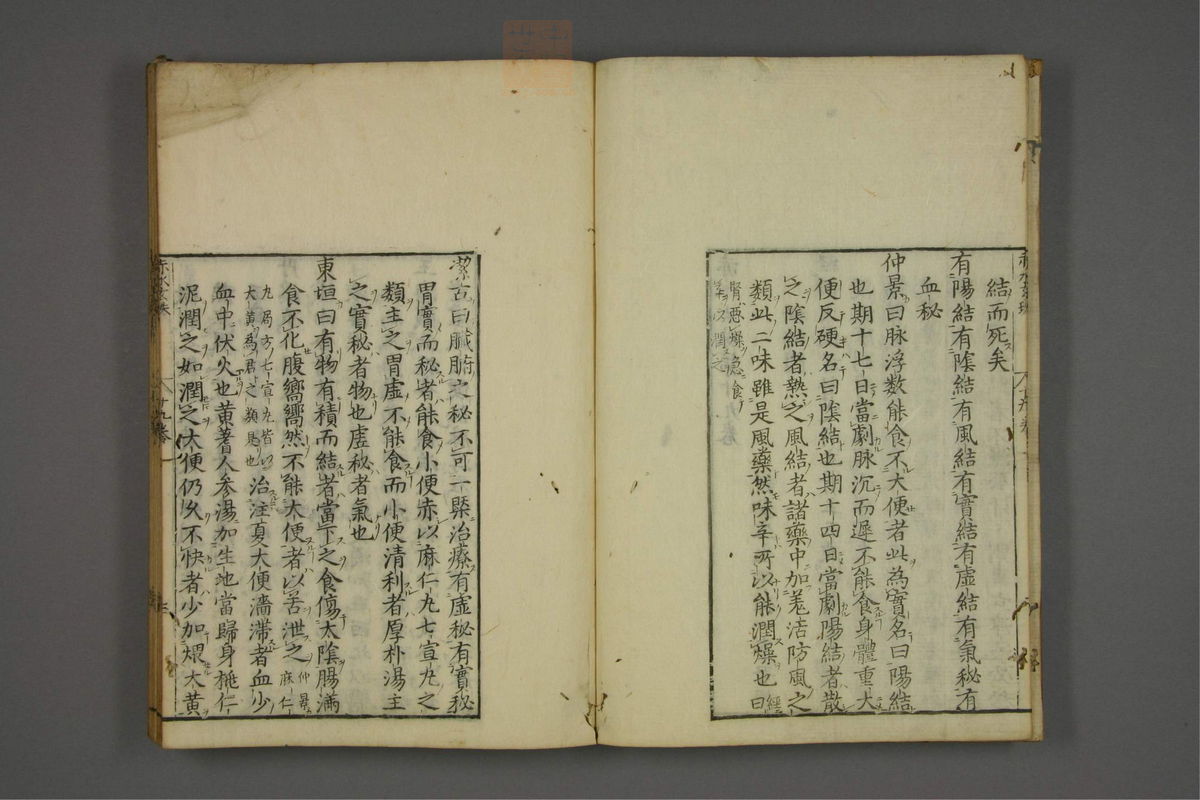 結而死矣
有陽結有陰結有風結有實結有虛結有氣秘有
血秘
仲景曰脉浮数能食不大便者此為實名曰陽結
也期十七日當劇脉沉而遲不能食身體重大
便反硬名曰陰結也期十四日當劇陽結者散
之陰結者熱之風結者諸藥中加羗活防風之
類此二味雖是風藥然味辛所以能潤燥也經曰
腎惡燥急食
辛以潤之
潔古曰臟腑之秘不可一槩治療有虛秘有實秘
胃實而秘者能食小便赤以麻仁丸七宣丸之
類主之胃虛不能食而小便清利者厚朴湯主
之實秘者物也虛秘者氣也
東垣曰有物有積而結者當下之食傷太陰腸滿
食不化腹嚮嚮然不能大便者以苦泄之仲景麻仁
丸局方七宣丸皆以
大黄為君之類是也治注夏大便濇滯者血少
血中伏火也黄耆人参湯加生地當歸身桃仁
泥潤之如潤之大便仍久不快者少加煨大黄